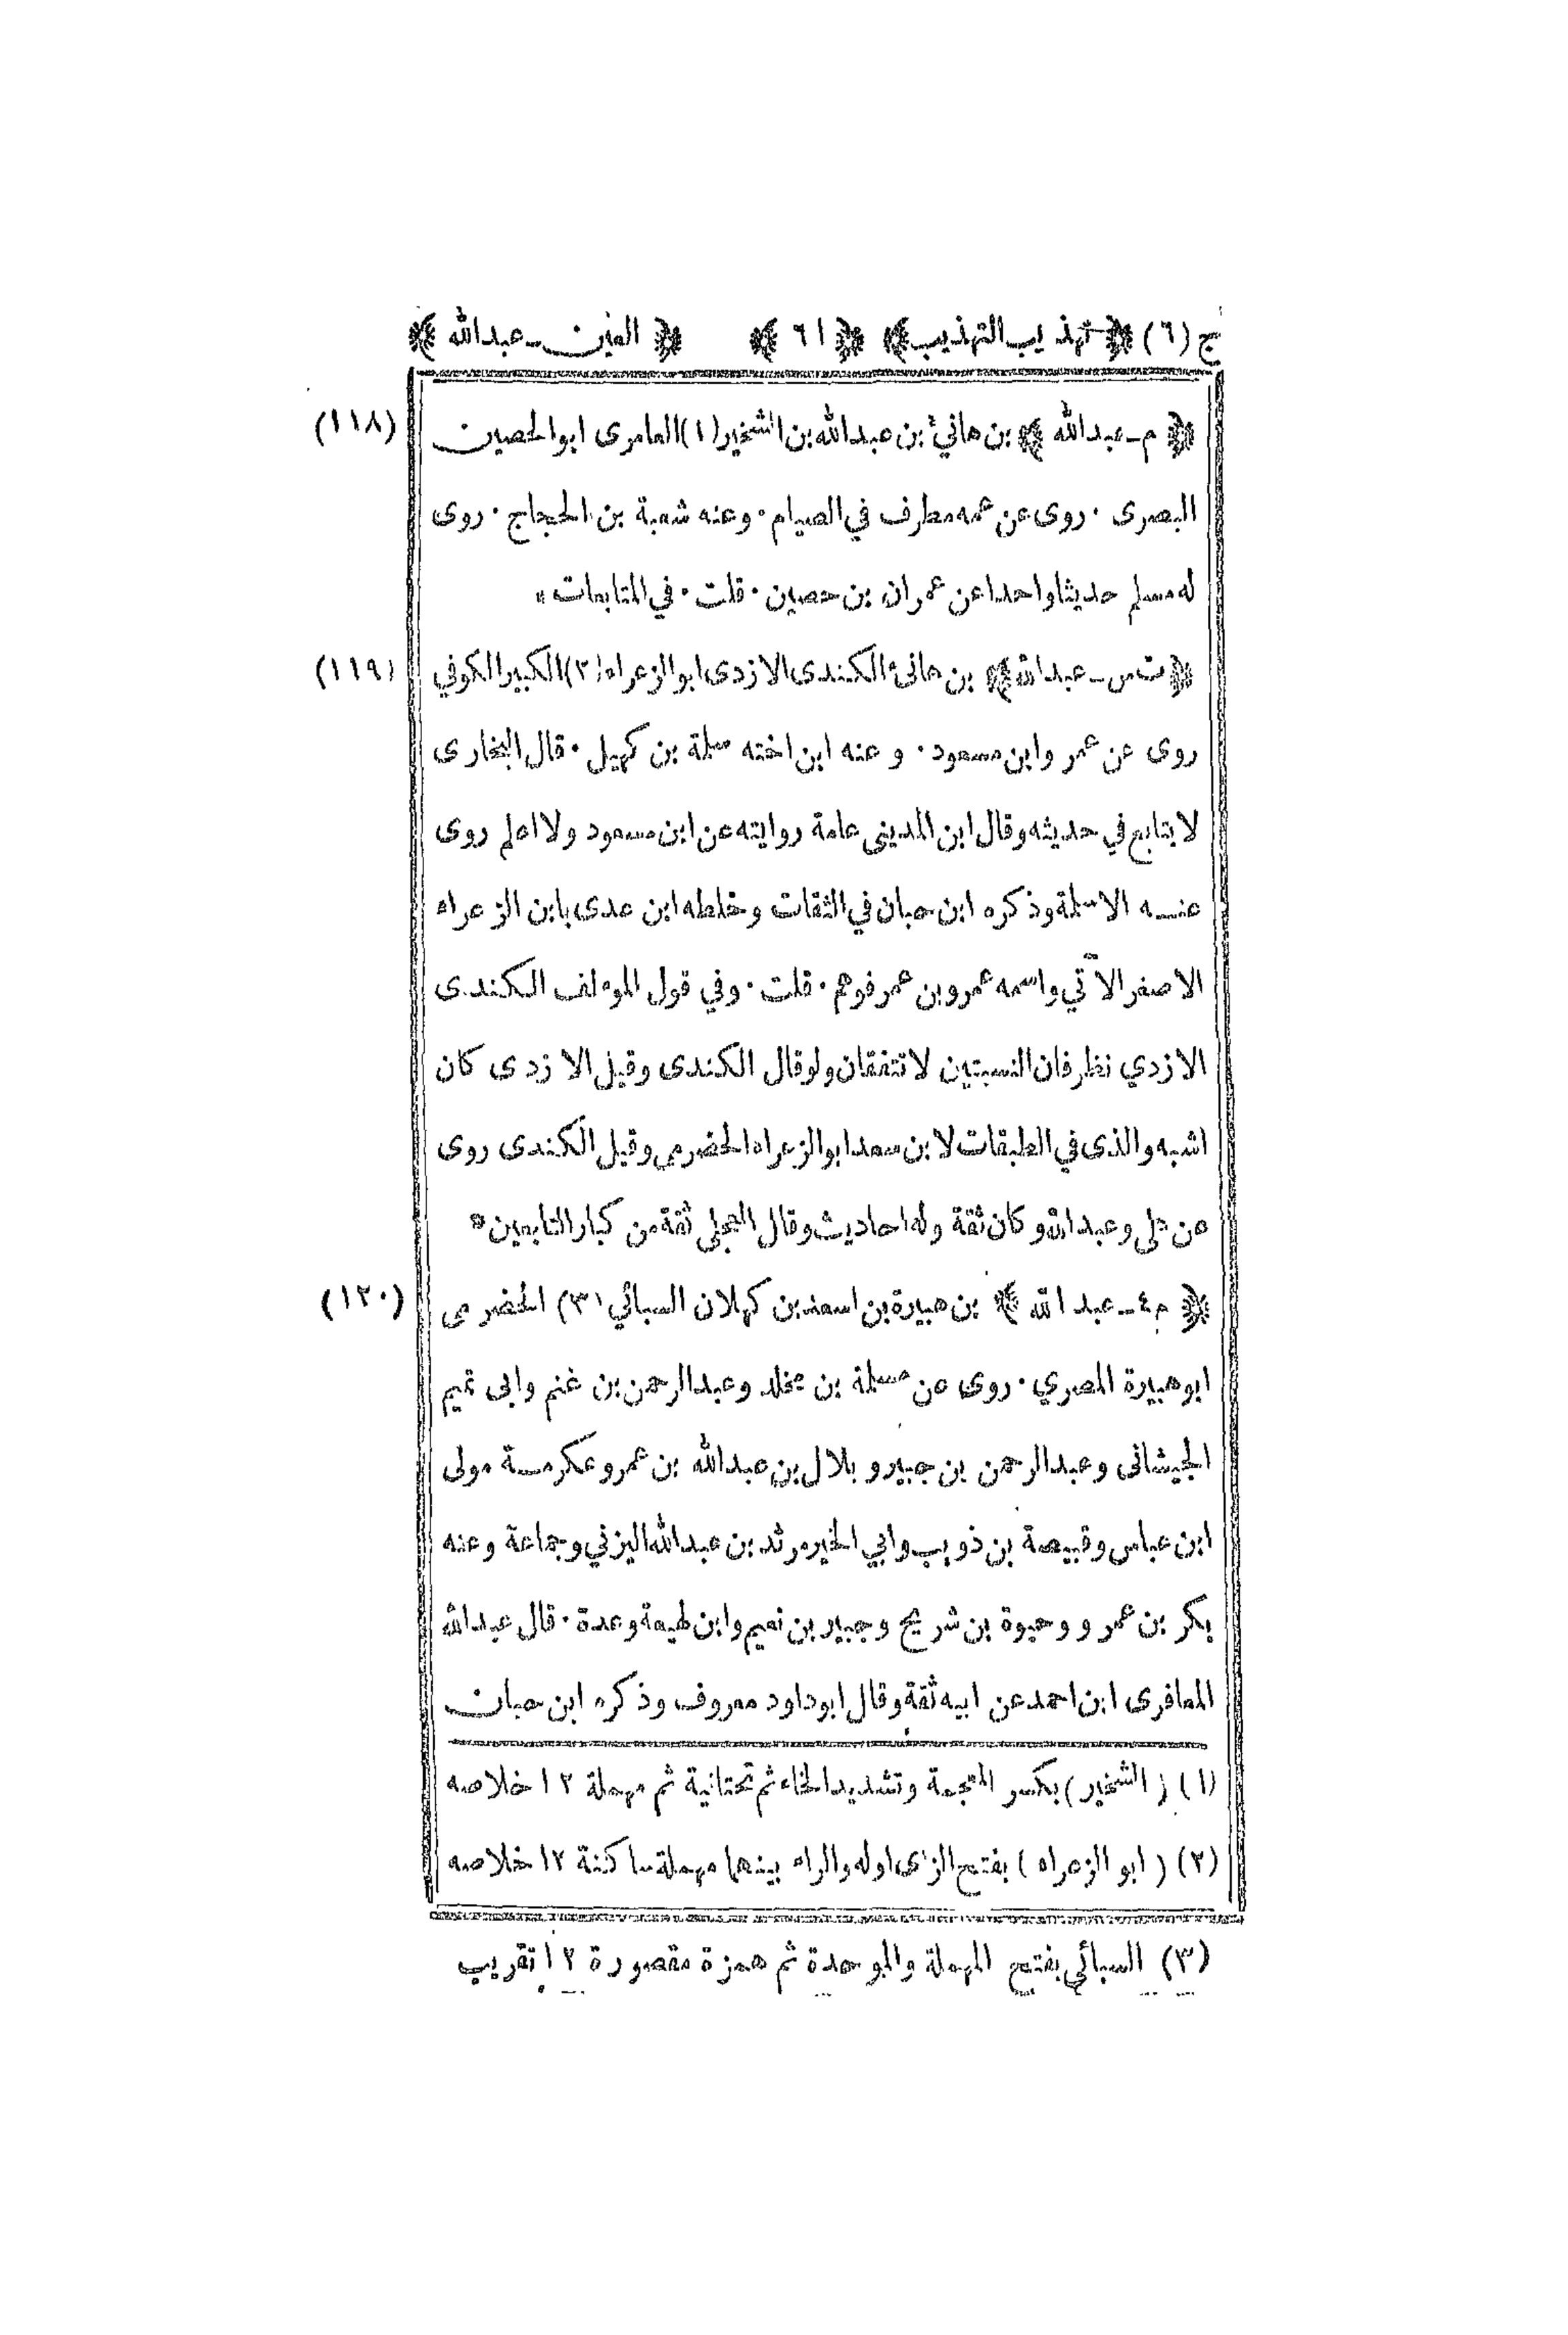 ج (٦) ﴿ تهذيب التهذيب ﴾ ﴿ ٦١ ﴾ ﴿ العين - عبدالله ﴾
﴿ م - عبدالله ﴾ بن هانئ بن عبدالله بن الشخير (١) العامرى ابوالحصين (١١٨)
البصرى ٠ روى عن عمه مطرف في الصيام ٠ وعنه شعبة بن الحجاج ٠ روى
له مسلم حديثا واحدا عن عمران بن حصين ٠ قلت ٠ في المتابعات *
﴿ ت س - عبدالله ﴾ بن هانئ الكندى الازدى ابوالزعراء (٢) الكبير الكوفي (١١٩)
روى عن عمر وابن مسعود ٠ و عنه ابن اخته سلمة بن كهيل ٠ قال البخارى
لا يتابع في حديثه وقال ابن المدينى عامة روايته عن ابن مسعود ولا اعلم روى
عنـه الا سلمة وذكره ابن حبان في الثقات وخلطه ابن عدى بابن الزعراء
الاصغر الآتي واسمه عمرو بن عمر فوهم ٠ قلت ٠ وفي قول المؤلف الكندى
الازدي نظر فان النسبتين لا تتفقان ولوقال الكندى وقيل الازدى كان
اشبه والذى في الطبقات لابن سعد ابوالزعراء الحضرمي وقيل الكندى روى
عن على وعبدالله وكان ثقة وله احاديث وقال العجلي ثقة من كبار التابعين *
﴿ م ٤ - عبد الله ﴾ بن هبيرة بن اسعد بن كهلان السبائي (٣) الحضرمى (١٢٠)
ابوهبيرة المصري ٠ روى عن مسلمة بن مخلد وعبدالرحمن بن غنم وابى تميم
الجيشانى وعبدالرحمن بن جبير و بلال بن عبدالله بن عمر وعكرمـة مولى
ابن عباس وقبيصة بن ذويب وابي الخير مرثد بن عبدالله اليزني وجماعة وعنه
بكر بن عمر و وحيوة بن شريح وجبير بن نعيم وابن لهيعة وعدة ٠ قال عبدالله
المعافرى ابن احمد عن ابيه ثقة وقال ابوداود معروف وذكره ابن حبان
(١) (الشخير) بكسر المعجمة وتشديد الخاء ثم تحتانية ثم مهملة ١٢ خلاصه
(٢) (ابو الزعراء) بفتح الزاى اوله والراء بينهما مهملة ساكنة ١٢ خلاصه
(٣) السبائي بفتح المهملة والموحدة ثم همزة مقصورة ١٢ تقريب